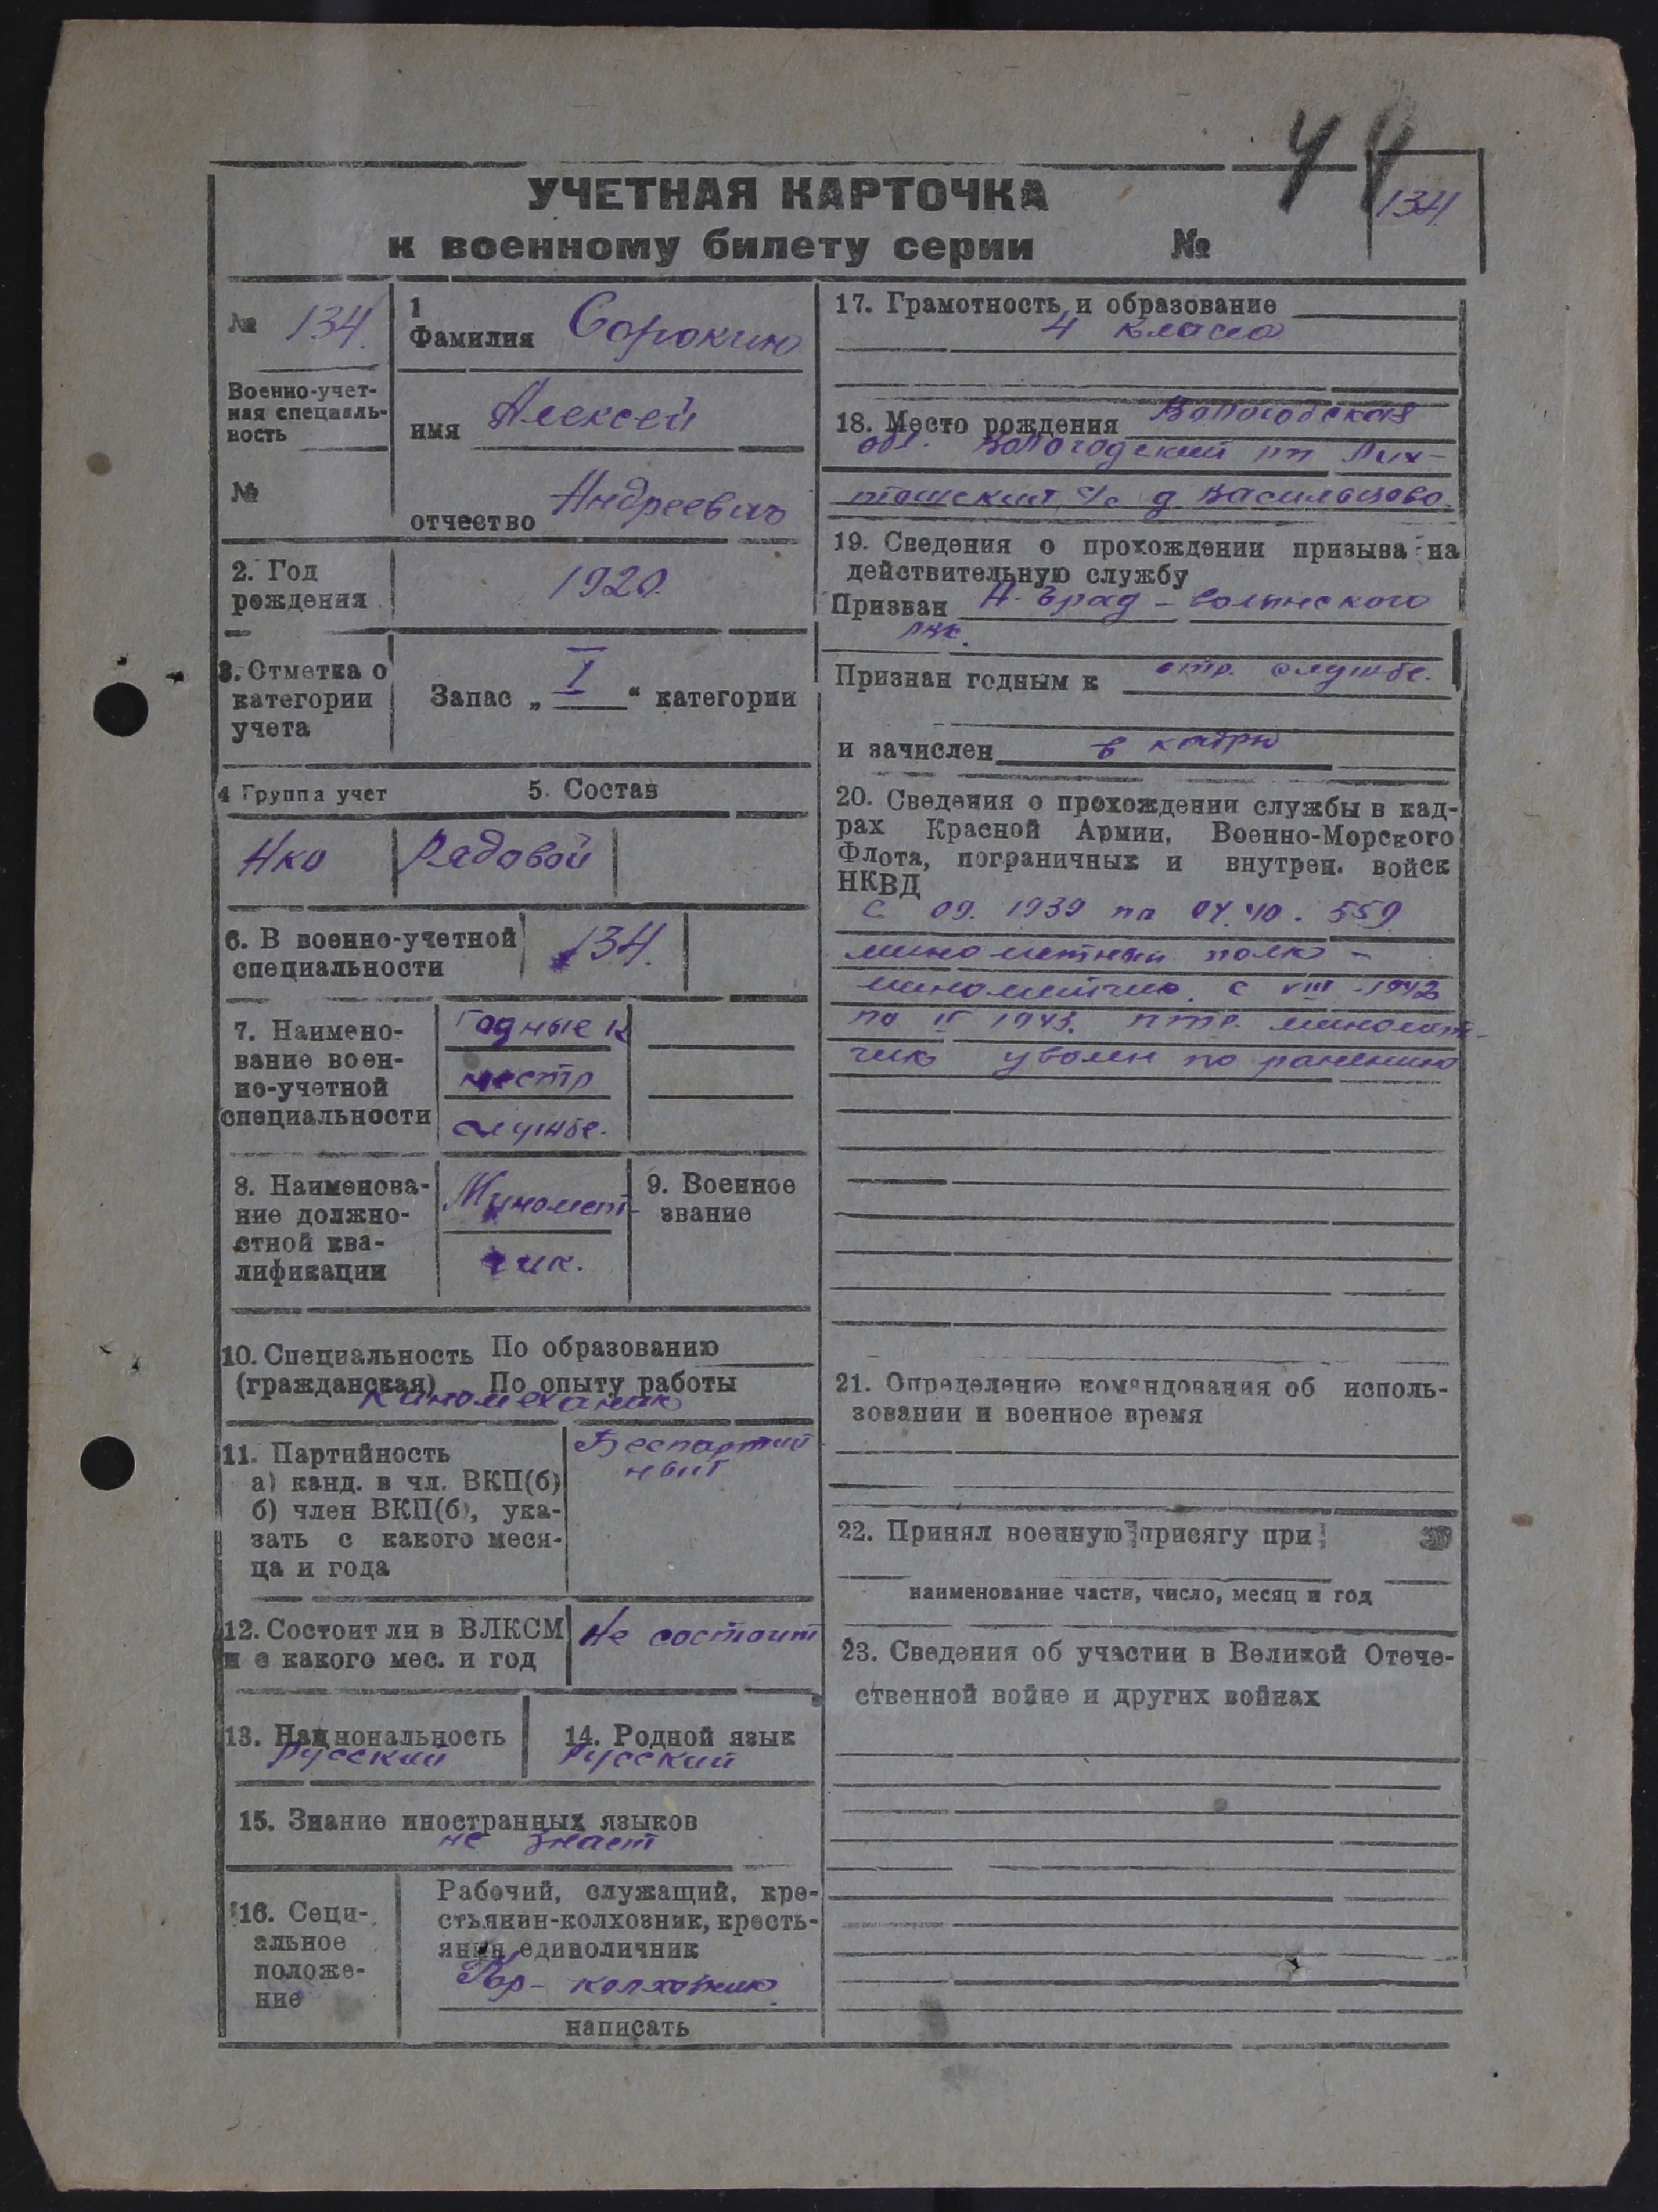 44
134.
УЧЕТНАЯ КАРТОЧКА
к военному билету серии №
№ 134.
Военно-учет-
ная специаль-
ность
№
1
Фамилия Сорокин
имя Алексей
отчество Андреевич
2. Год
рождения
1920.
3. Отметка о
категории
учета
Запас „ I “ категории
4 Группа учет
5. Состав
Нко Радовой
6. В военно-учетной
специальности
134.
7. Наимено-
вание воен-
но-учетной
специальности
Годные к
нестр
службе.
8. Наименова-
ние должно-
стной ква-
лификации
Миномет-
чик.
9. Военное
звание
10. Специальность По образованию
(гражданская) По опыту работы
киномеханик
11. Партийность
а) канд. в чл. ВКП(б)
б) член ВКП(б), ука-
зать с какого меся-
ца и года
Беспартий
ный
12. Состоит ли в ВЛКСМ
и с какого мес. и год
Не состоит
13. Национальность
Русский
14. Родной язык
Русский
15. Знание иностранных языков
не знает
16. Соци-
альное
положе-
ние
Рабочий, служащий, кре-
стьянин-колхозник, кресть-
янин единоличник
колхозник
написать
17. Грамотность и образование
4 класса
18. Место рождения Вологодская
обл. Вологодский
с/с д Васильцово.
19. Сведения о прохождении призыва на
действительную службу
Призван Н-Град-волынского
рвк.
Признан годным к стр. службе.
и зачислен в кадры
20. Сведения о прохождении службы в кад-
рах Красной Армии, Военно-Морского
Флота, пограничных и внутрен. войск
НКВД
С 09. 1939 по 04.40. 559
минометный полк -
минометчик. с VIII-1942
по 1943. птр. миномет-
чик уволен по ранению
21. Определение командования об исполь-
зовании и военное время
22. Принял военную присягу при
наименование части, число, месяц и год
23. Сведения об участии в Великой Отече-
ственной войне и других войнах